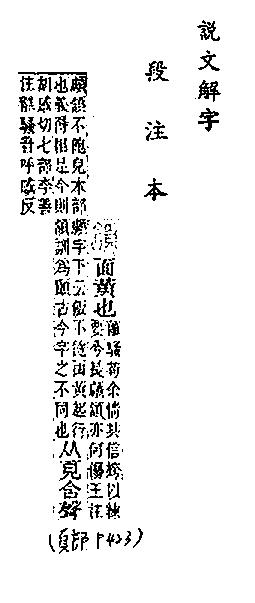 説文解字
段注本
頷 面黃也 離騷苟余情其信姱以練
要兮長顑頷亦何傷王注
顑頷不飽皃本部顑字下云飯不飽面黃起行
也義得相足今則頷訓爲頤古今字之不同也 从頁含聲
胡感切七部李善
注離騷音呼感反
(頁部 P423)